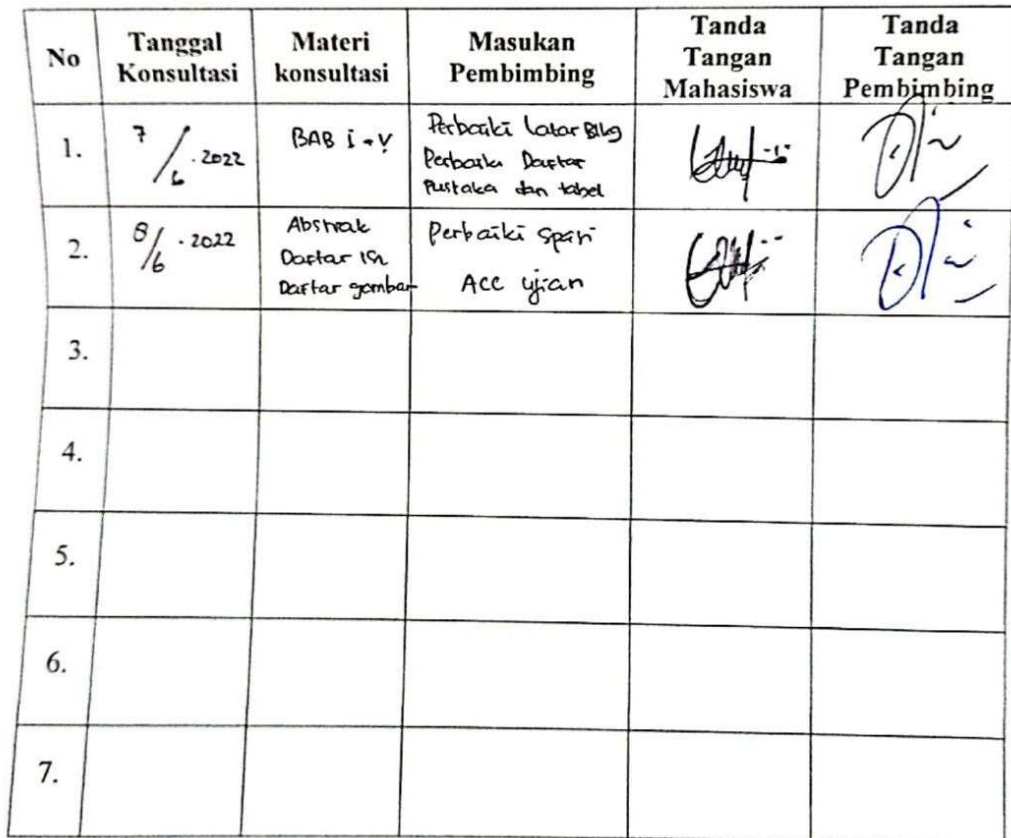 No Tanggal Konsultasi Materi konsultasi Masukan Pembimbing Tanda Tangan Mahasiswa Tanda Tangan Pembimbing
1. 7/6 . 2022 BAB I - V Perbaiki Latar Blkg
Perbaiki Daftar
Pustaka dan tabel
2. 8/6 . 2022 Abstrak Perbaiki
Daftar Isi
Daftar gambar ACC ujian
3.
4.
5.
6.
7.